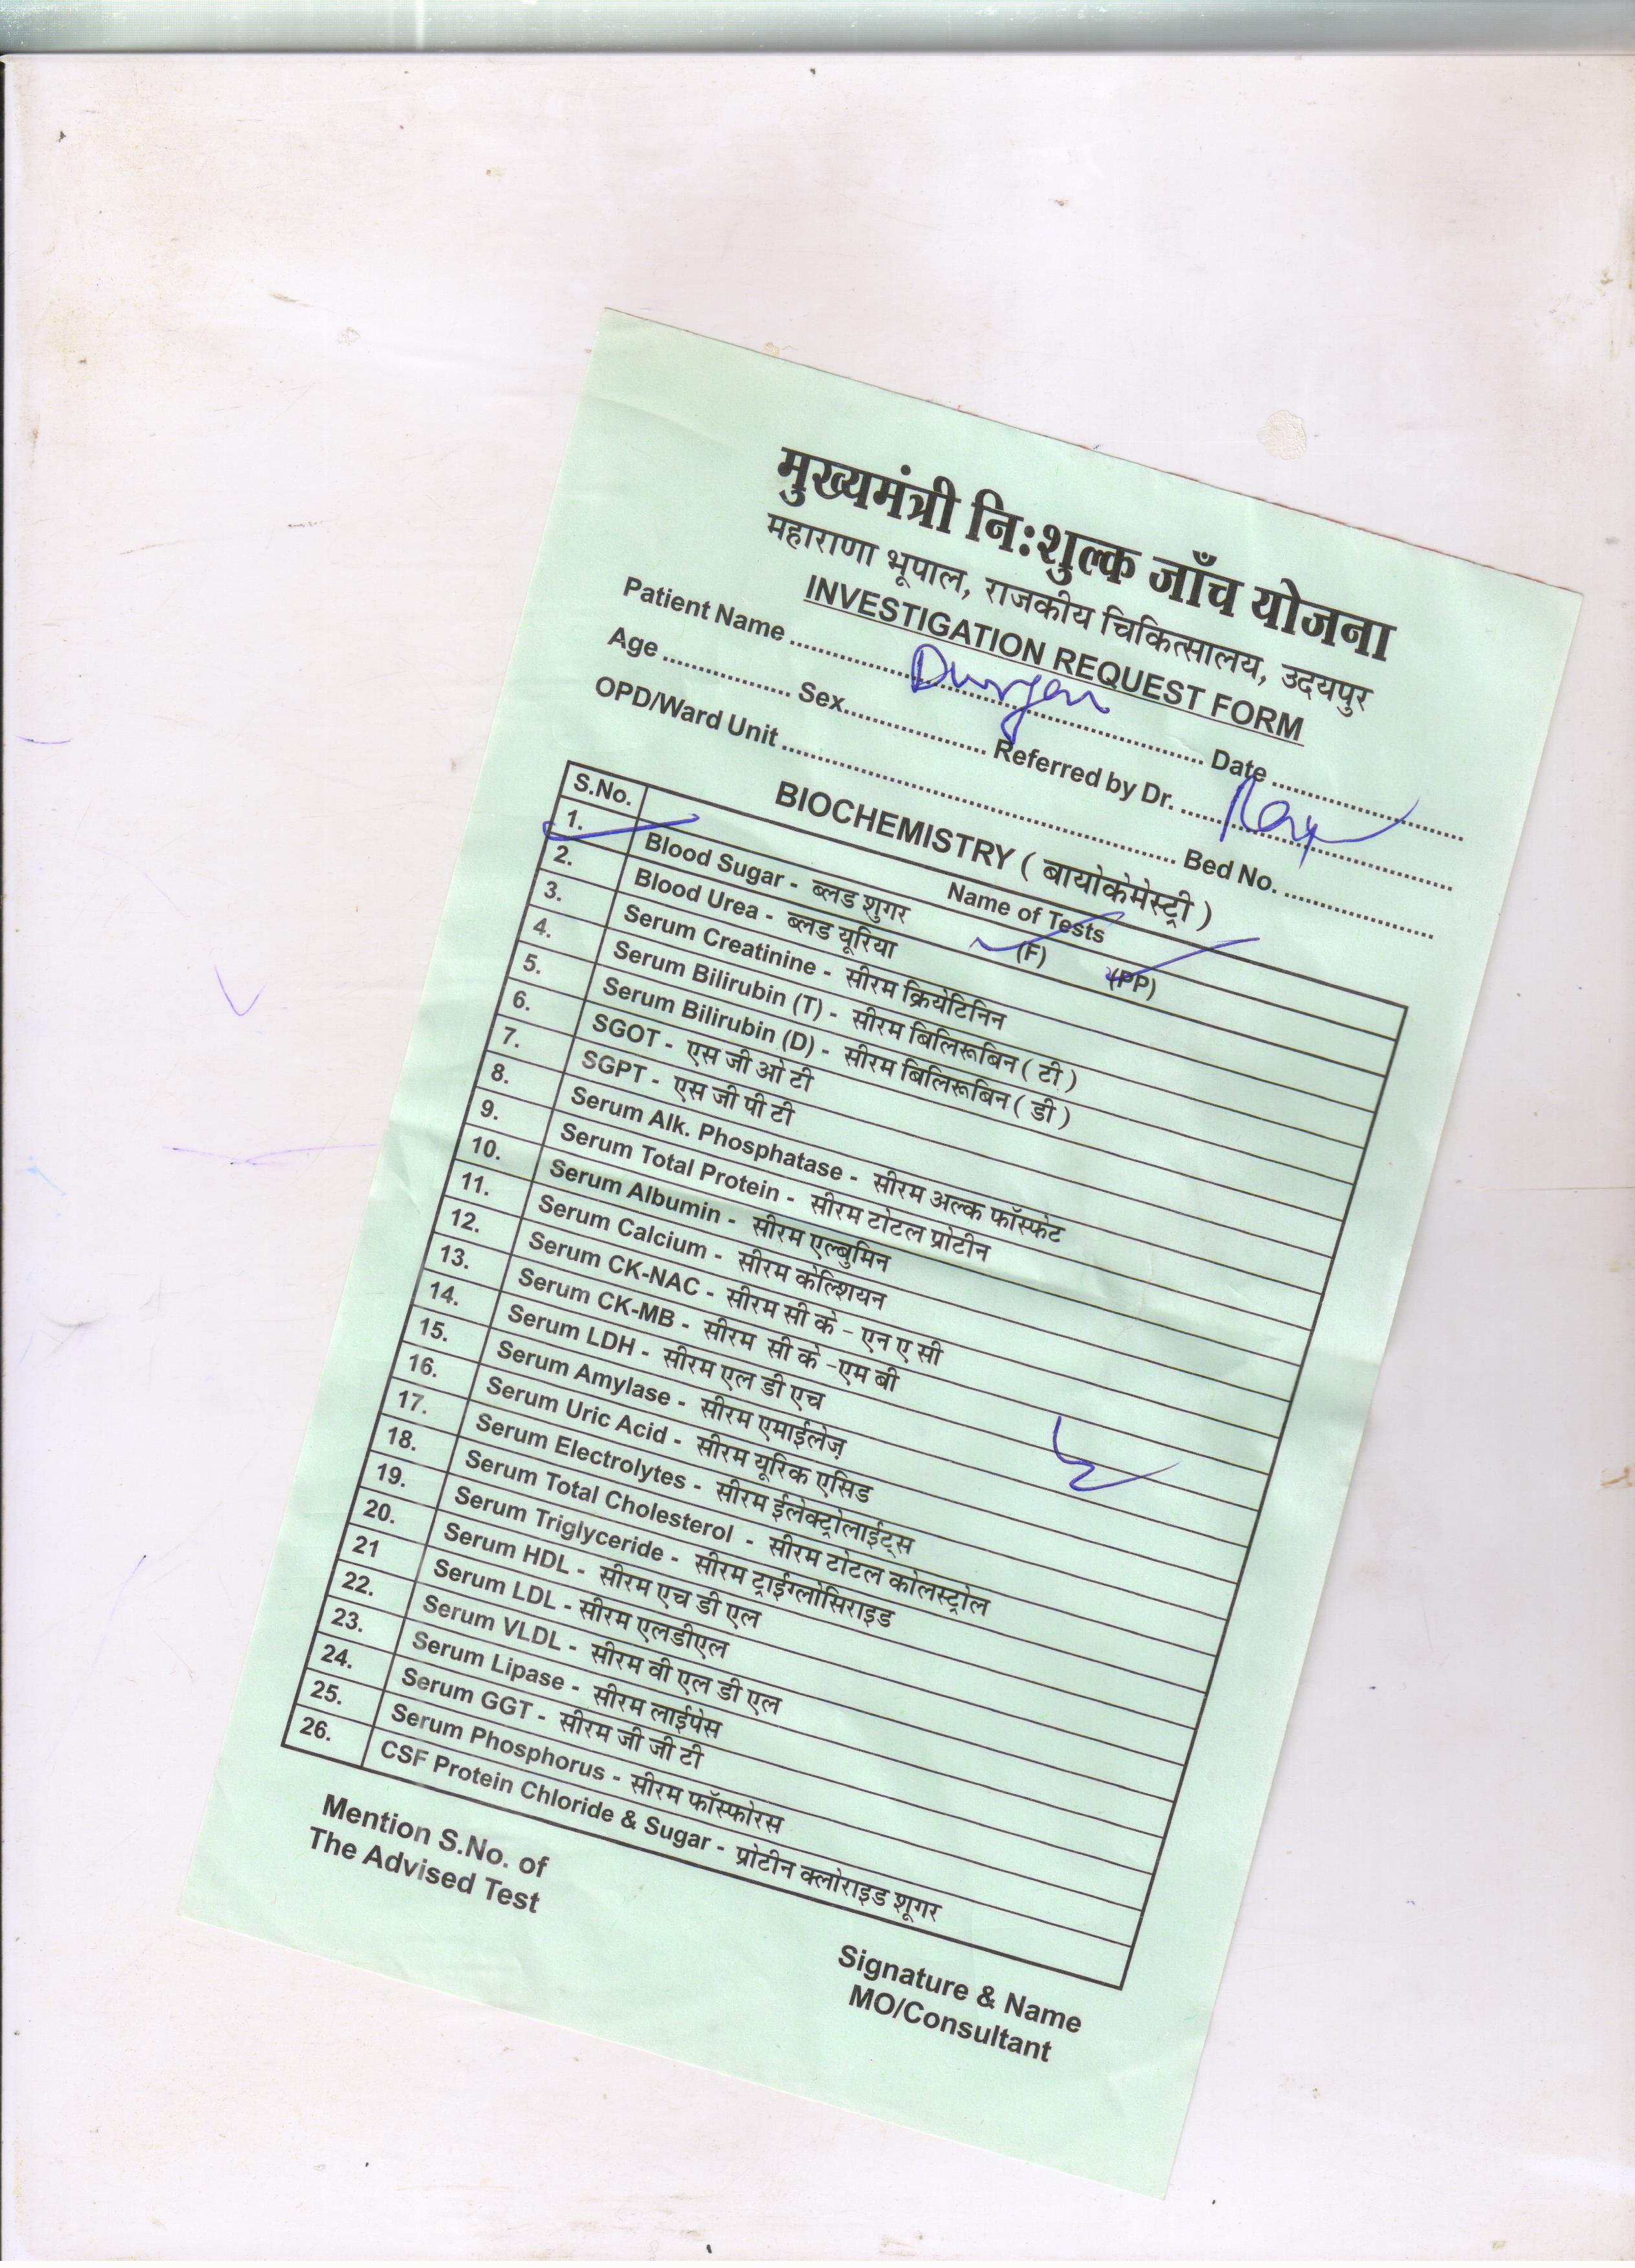 मुख्यमंत्री निःशुल्क जाँच योजना
महाराणा भूपाल, राजकीय चिकित्सालय, उदयपुर
INVESTIGATION REQUEST FORM
Patient Name .................... Date ....................
Age .................... Sex.................... Referred by Dr. ....................
OPD/Ward Unit .................... Bed No. ....................
BIOCHEMISTRY ( बायोकेमेस्ट्री )
S.No. Name of Tests
1. Blood Sugar - ब्लड शुगर (F) (PP)
2. Blood Urea - ब्लड यूरिया
3. Serum Creatinine - सीरम क्रियेटिनिन
4. Serum Bilirubin (T) - सीरम बिलिरूबिन ( टी )
5. Serum Bilirubin (D) - सीरम बिलिरूबिन ( डी )
6. SGOT - एस जी ओ टी
7. SGPT - एस जी पी टी
8. Serum Alk. Phosphatase - सीरम अल्क फॉस्फेट
9. Serum Total Protein - सीरम टोटल प्रोटीन
10. Serum Albumin - सीरम एल्बुमिन
11. Serum Calcium - सीरम केल्शियन
12. Serum CK-NAC - सीरम सी के - एन ए सी
13. Serum CK-MB - सीरम सी के -एम बी
14. Serum LDH - सीरम एल डी एच
15. Serum Amylase - सीरम एमाईलेज़
16. Serum Uric Acid - सीरम यूरिक एसिड
17. Serum Electrolytes - सीरम ईलेक्ट्रोलाईट्स
18. Serum Total Cholesterol - सीरम टोटल कोलस्ट्रोल
19. Serum Triglyceride - सीरम ट्राईग्लोसिराइड
20. Serum HDL - सीरम एच डी एल
21 Serum LDL - सीरम एलडीएल
22. Serum VLDL - सीरम वी एल डी एल
23. Serum Lipase - सीरम लाईपेस
24. Serum GGT - सीरम जी जी टी
25. Serum Phosphorus - सीरम फॉस्फोरस
26. CSF Protein Chloride & Sugar - प्रोटीन क्लोराइड शूगर
Mention S.No. of
The Advised Test
Signature & Name
MO/Consultant